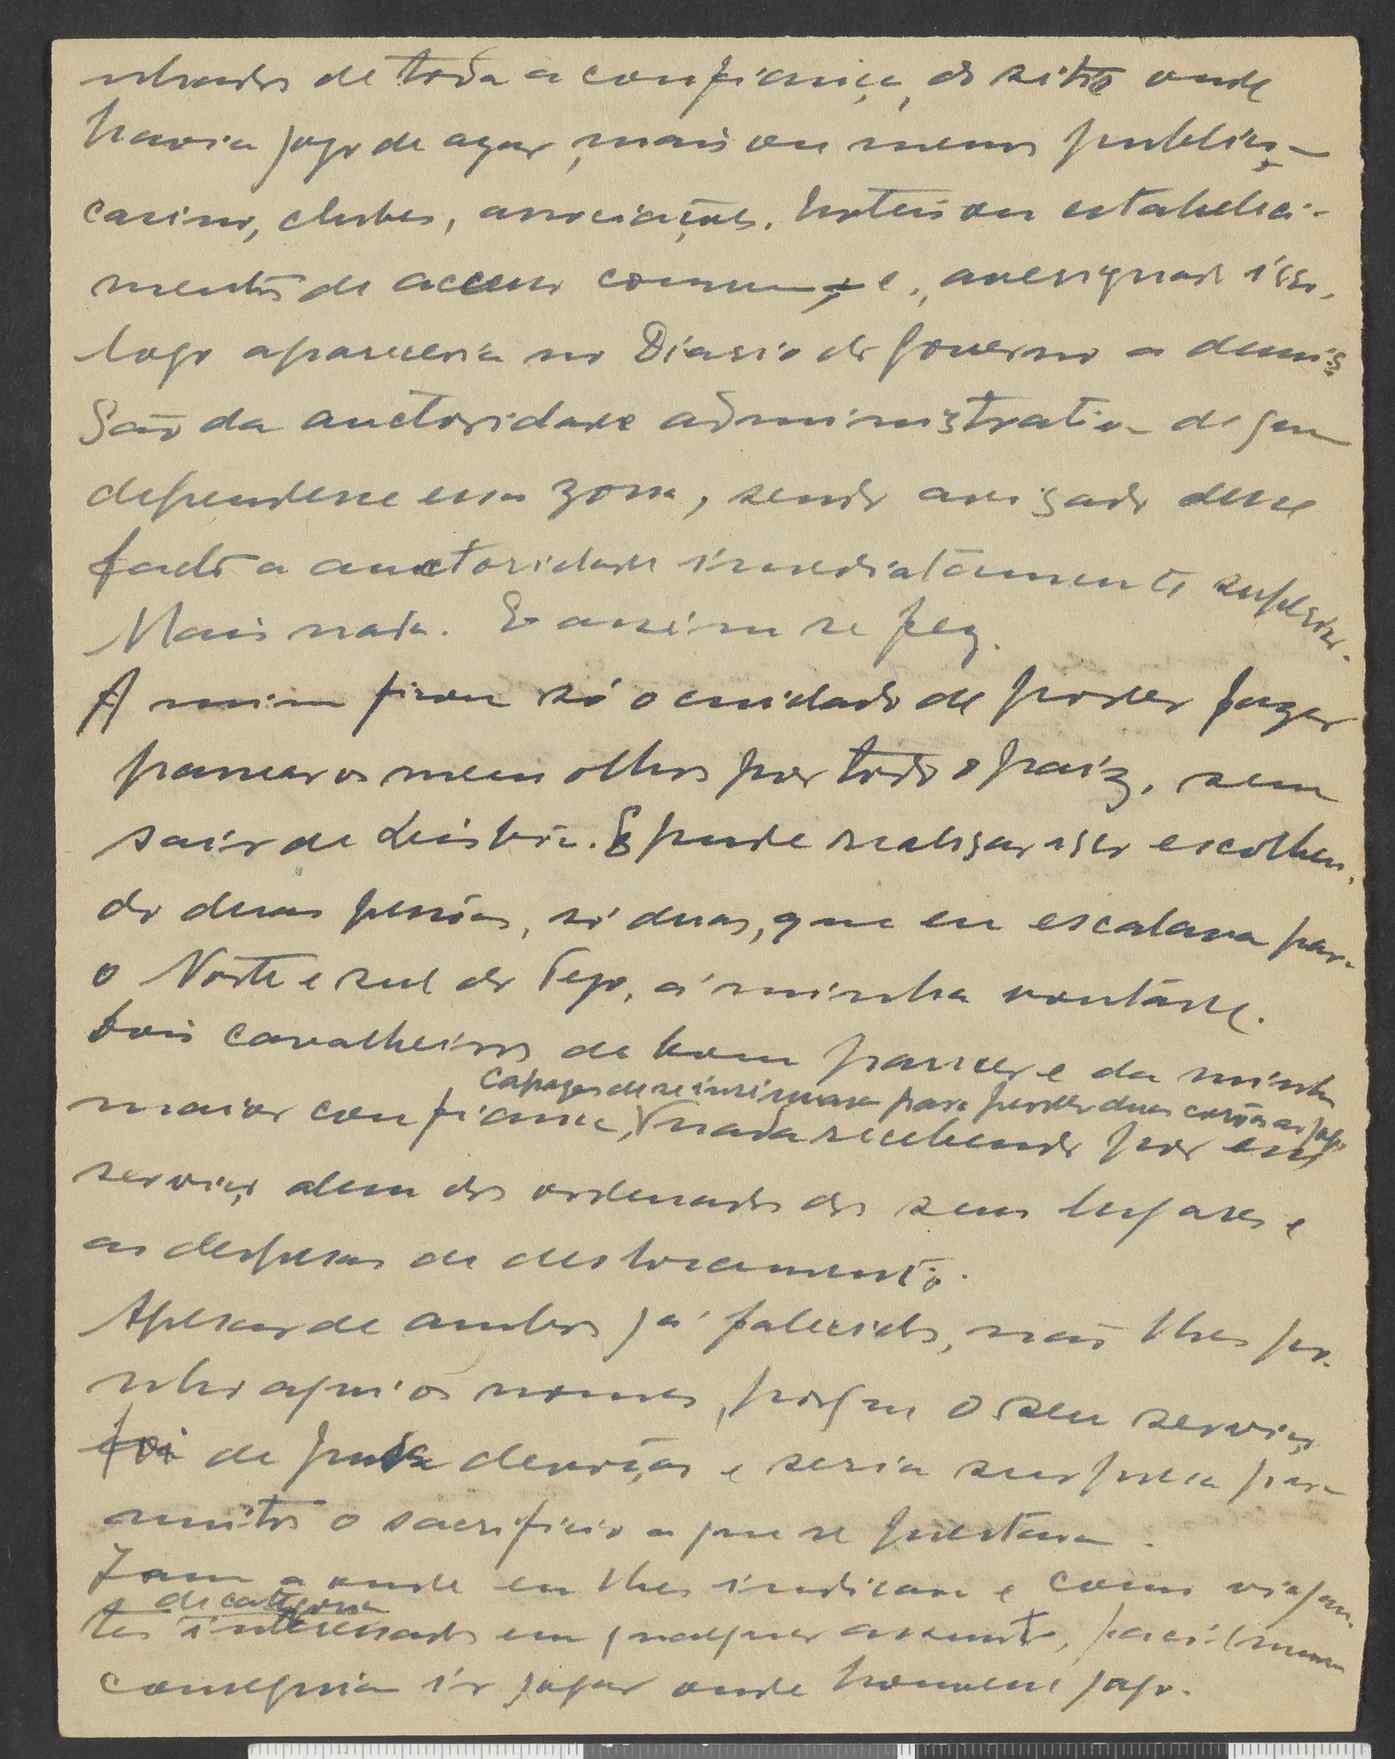 nhados de toda a confiança, do sitio onde
havia jogo de azar, mais ou menos publico –
casino, clubes, associações, hoteis ou estabeleci-
mentos de accesso commum – e, averiguado isso,
logo apareceria no Diario do Governo a demis
são da auctoridade administrativa de que
dependesse essa zona, sendo avisado desse
facto a auctoridade imediatamente superior.
Mais nada. E assim se fez.
A mim ficou só o cuidado de poder fazer
passear os meus olhos por todo o paiz, sem
sair de Lisboa. E pude realisar isso escolhen-
do duas pessôas, só duas, que eu escalava para
o Norte e sul do Tejo, á minha vontade.
Dois cavalheiros de bom parecer e da minha
capazes de se insinuarem para perder duas corôas ao jogo
maior confiança, nada recebendo por esse
serviço alem dos ordenados dos seus lugares e
as despesas de deslocamento.
Apesar de ambos já falecidos, não lhes po-
nho aqui os nomes, porque o seu serviço
foi de pura devoção e seria surpresa para
muitos o sacrificio a que se prestavam.
Iam aonde eu lhes indicava e como viajan-
de categoria
tes interessados em qualquer assunto, facilmente
conseguiam ir jogar onde houvesse jogo.